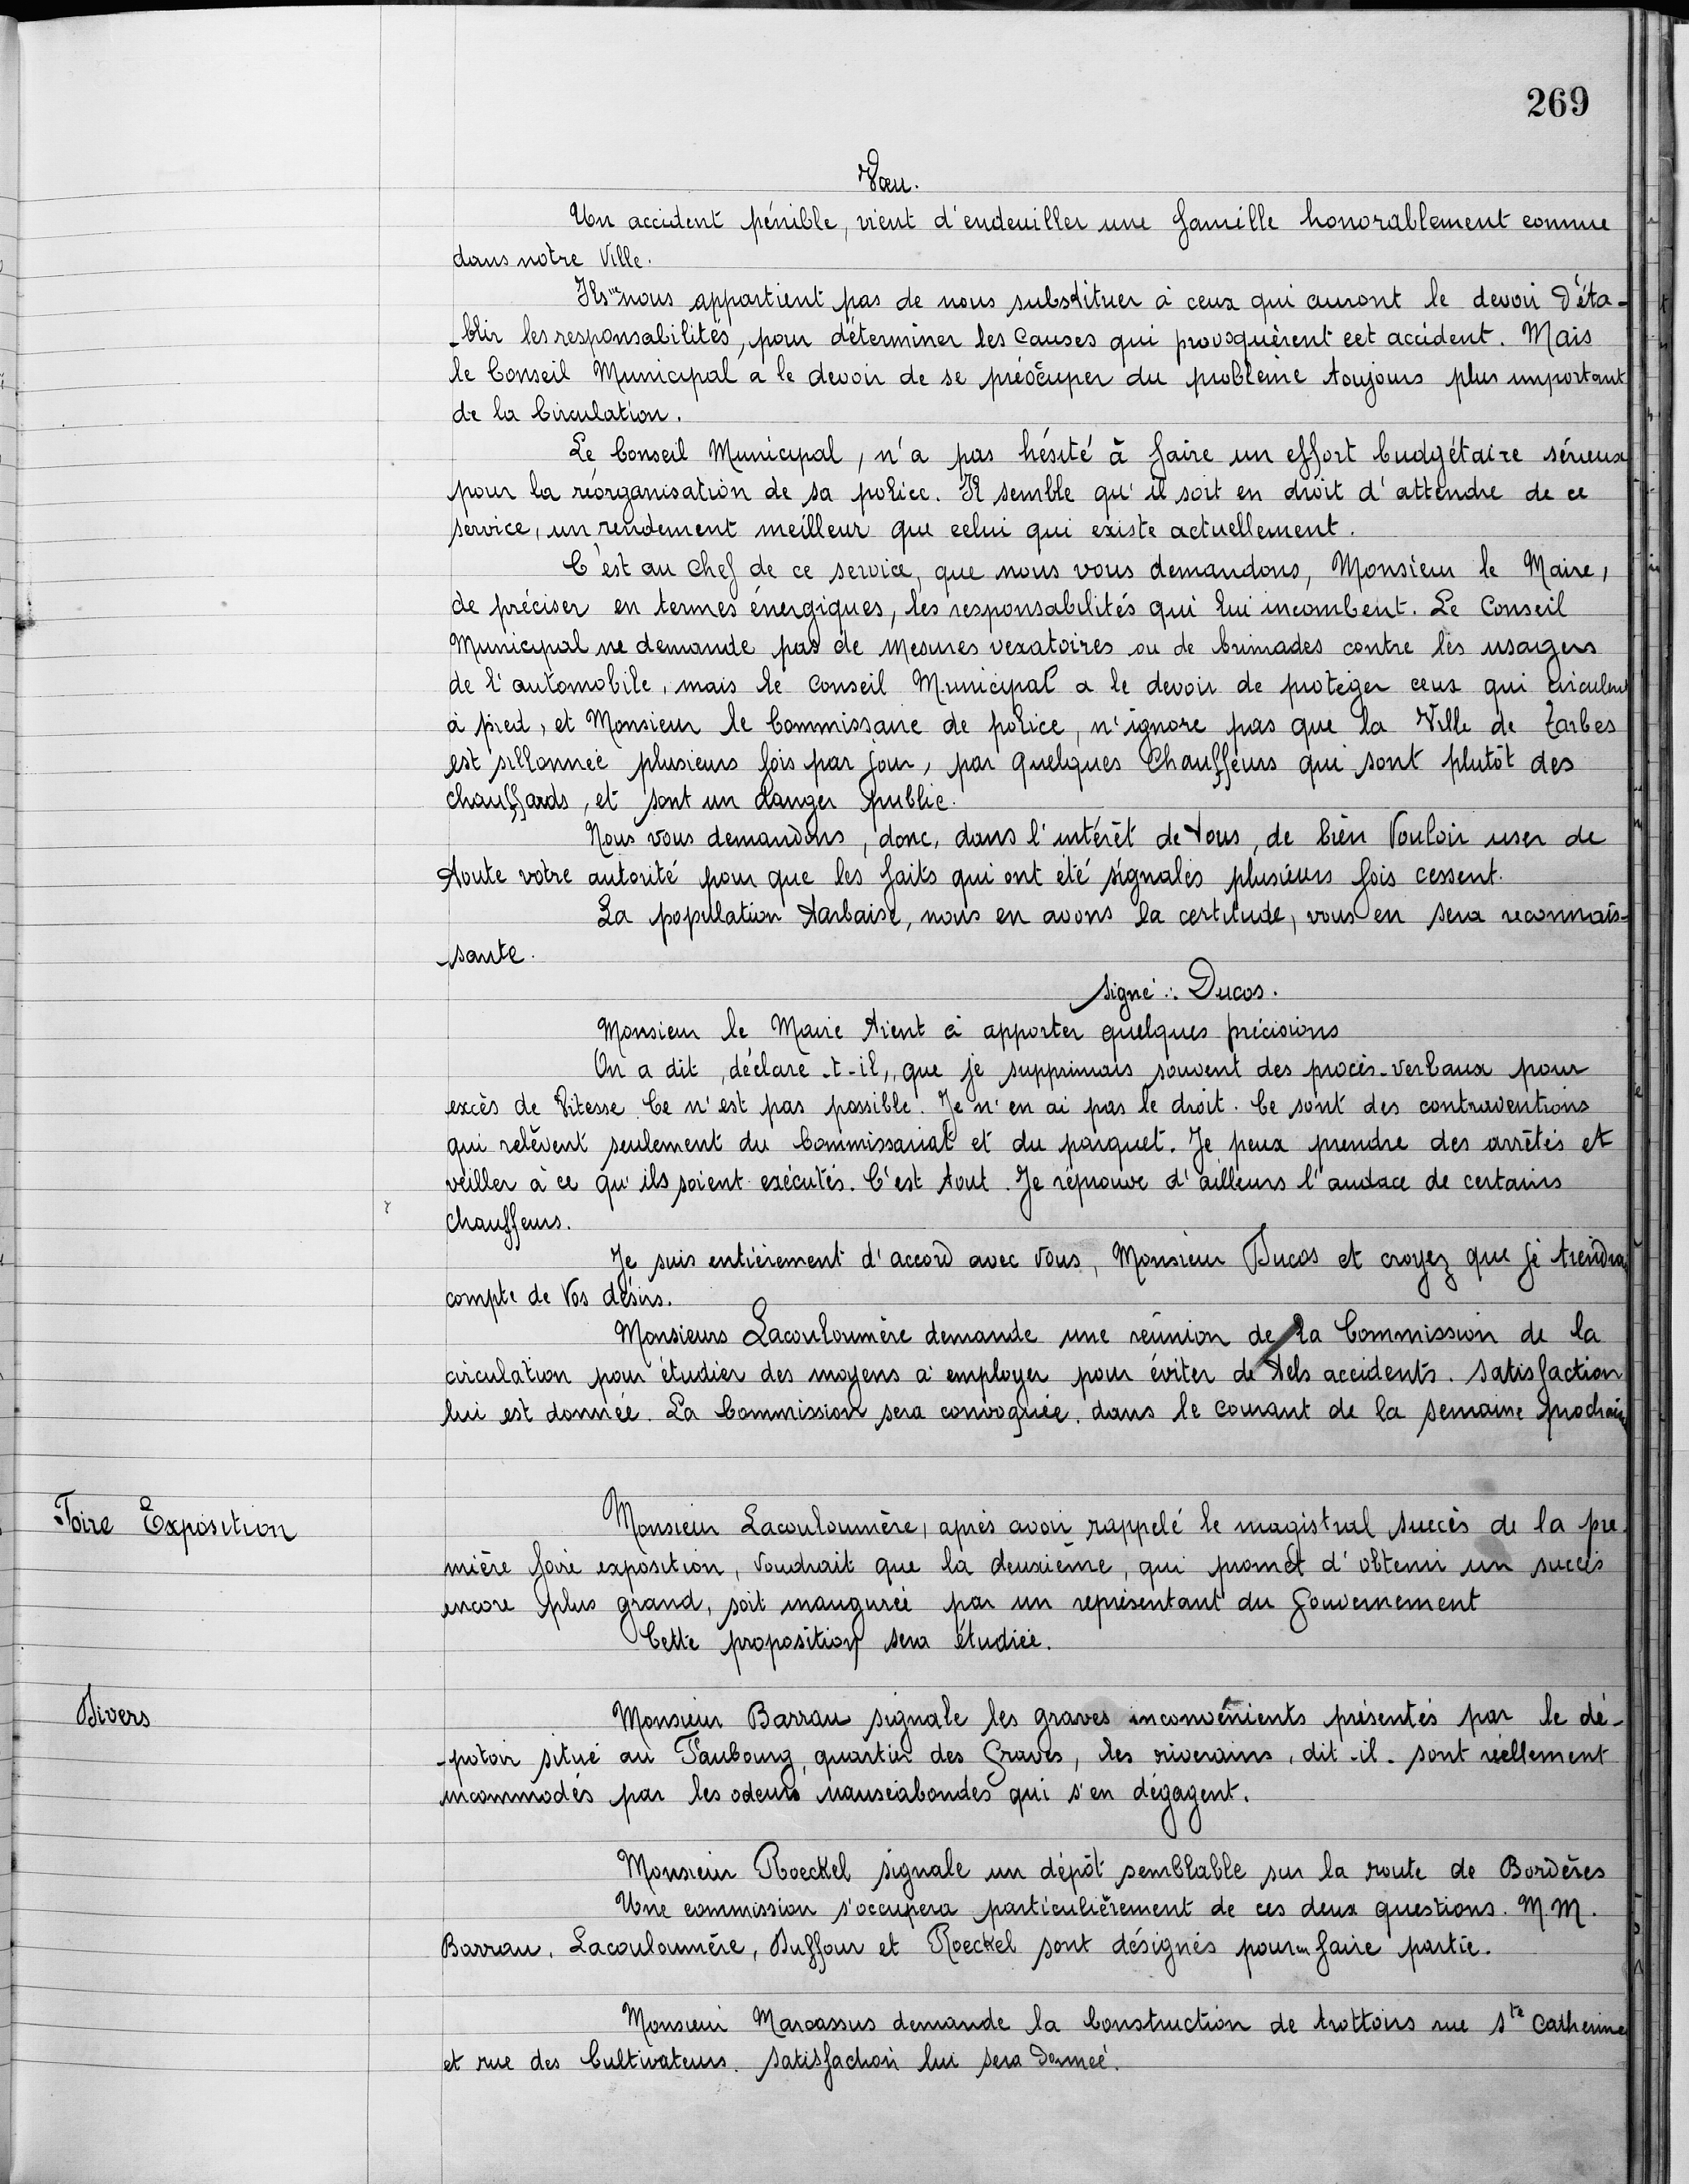 269
Vœu.
Un accident pénible, vient d'endeuiller une famille honorablement connue
dans notre Ville.
Ils ne nous appartient pas de nous substituer à ceux qui auront le devoir d'éta-
-blir les responsabilités, pour déterminer les causes qui provoquèrent cet accident. Mais
le Conseil Municipal a le devoir de se préoccuper du problème toujours plus important
de la Circulation.
Le Conseil Municipal, n'a pas hésité à faire un effort budgétaire sérieux
pour la réorganisation de sa police. Il semble qu'il soit en droit d'attendre de ce
service, un rendement meilleur que celui qui existe actuellement.
C'est au Chef de ce service, que nous vous demandons, Monsieur le Maire,
de préciser en termes énergiques, les responsabilités qui lui incombent. Le Conseil
Municipal ne demande pas de mesures vexatoires ou de brimades contre les usagers
de l'automobile, mais le Conseil Municipal a le devoir de protéger ceux qui circulent
à pied, et Monsieur le Commissaire de police, n'ignore pas que la Ville de Tarbes
est sillonnée plusieurs fois par jour, par quelques Chauffeurs qui sont plutôt des
chauffards, et sont un danger public.
Nous vous demandons, donc, dans l'intérêt de tous, de bien Vouloir user de
toute votre autorité pour que les faits qui ont été signalés plusieurs fois cessent.
La population tarbaise, nous en avons la certitude, vous en sera reconnais-
-sante.
signé : Ducos.
Monsieur le Maire tient à apporter quelques précisions
On a dit, déclare-t-il, que je supprimais souvent des procès-verbaux pour
excès de Vitesse. Ce n'est pas possible. Je n'en ai pas le droit. Ce sont des contraventions
qui relèvent seulement du Commissariat et du parquet. Je peux prendre des arrêtés et
veiller à ce qu'ils soient exécutés. C'est tout. Je réprouve d'ailleurs l'audace de certains
chauffeurs.
Je suis entièrement d'accord avec Vous, Monsieur Ducos et croyez que je tiendrai
compte de Vos désirs.
Monsieurs Lacouloumère demande une réunion de la Commission de la
circulation pour étudier des moyens à employer pour éviter de tels accidents. Satisfaction
lui est donnée. La Commission sera convoquée, dans le courant de la semaine prochaine
Foire Exposition
Monsieur Lacouloumère, après avoir rappelé le magistral succès de la pre-
mière foire exposition, Voudrait que la deuxième, qui promet d'obtenir un succès
encore plus grand, soit inaugurée par un représentant du Gouvernement
Cette proposition sera étudiée.
Divers
Monsieur Barrau signale les graves inconvénients présentés par le dé-
-potoir situé au Faubourg, quartier des Graves, les riverains, dit-il. sont réellement
incommodés par les odeurs nauséabondes qui s'en dégagent.
Monsieur Roeckel signale un dépôt semblable sur la route de Bordères
Une commission s'occupera particulièrement de ces deux questions. M.M.
Barrau, Lacouloumère, Duffour et Roeckel sont désignés pour en faire partie.
Monsieur Marcassus demande la Construction de trottoirs rue Ste Catherine
et rue des Cultivateurs. Satisfaction lui sera donnée.